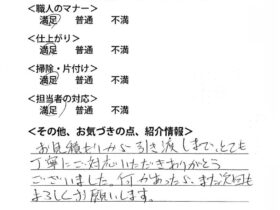 <職人のマナー>
満足 普通 不満
<仕上がり>
満足 普通 不満
<掃除・片付け>
満足 普通 不満
<担当者の対応>
満足 普通 不満
<その他、お気づきの点、紹介情報>
お見積もりから引き渡しまで、とても
丁寧にご対応いただきありがとう
ございました。何かあったら、また次回も
よろしくお願いします。